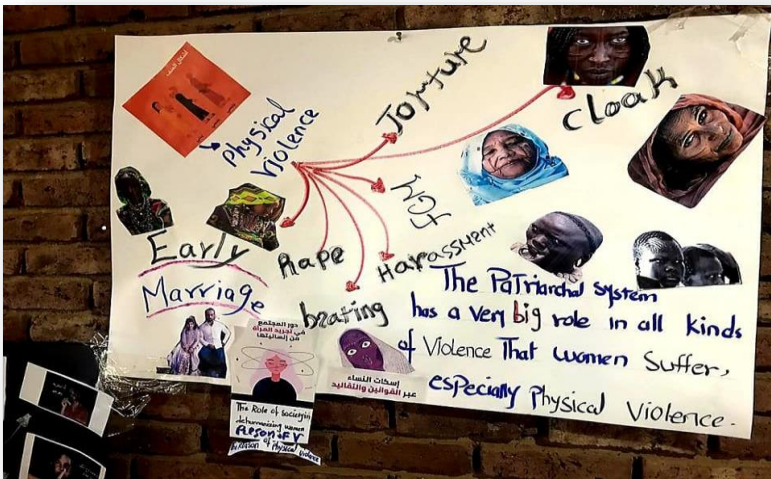 أشكال العنف
Physical
Violence
Torture
cloak
FGM
Early
Marriage
Rape
Harassment
beating
The Patriarchal System
has a very big role in all kinds
of Violence That women Suffer,
especially Physical Violence.
دور المجتمع
في تجريد المرأة
من إنسانيتها
إسكات النساء
عبر القوانين والتقاليد
The Role of Societies
dehumanising women